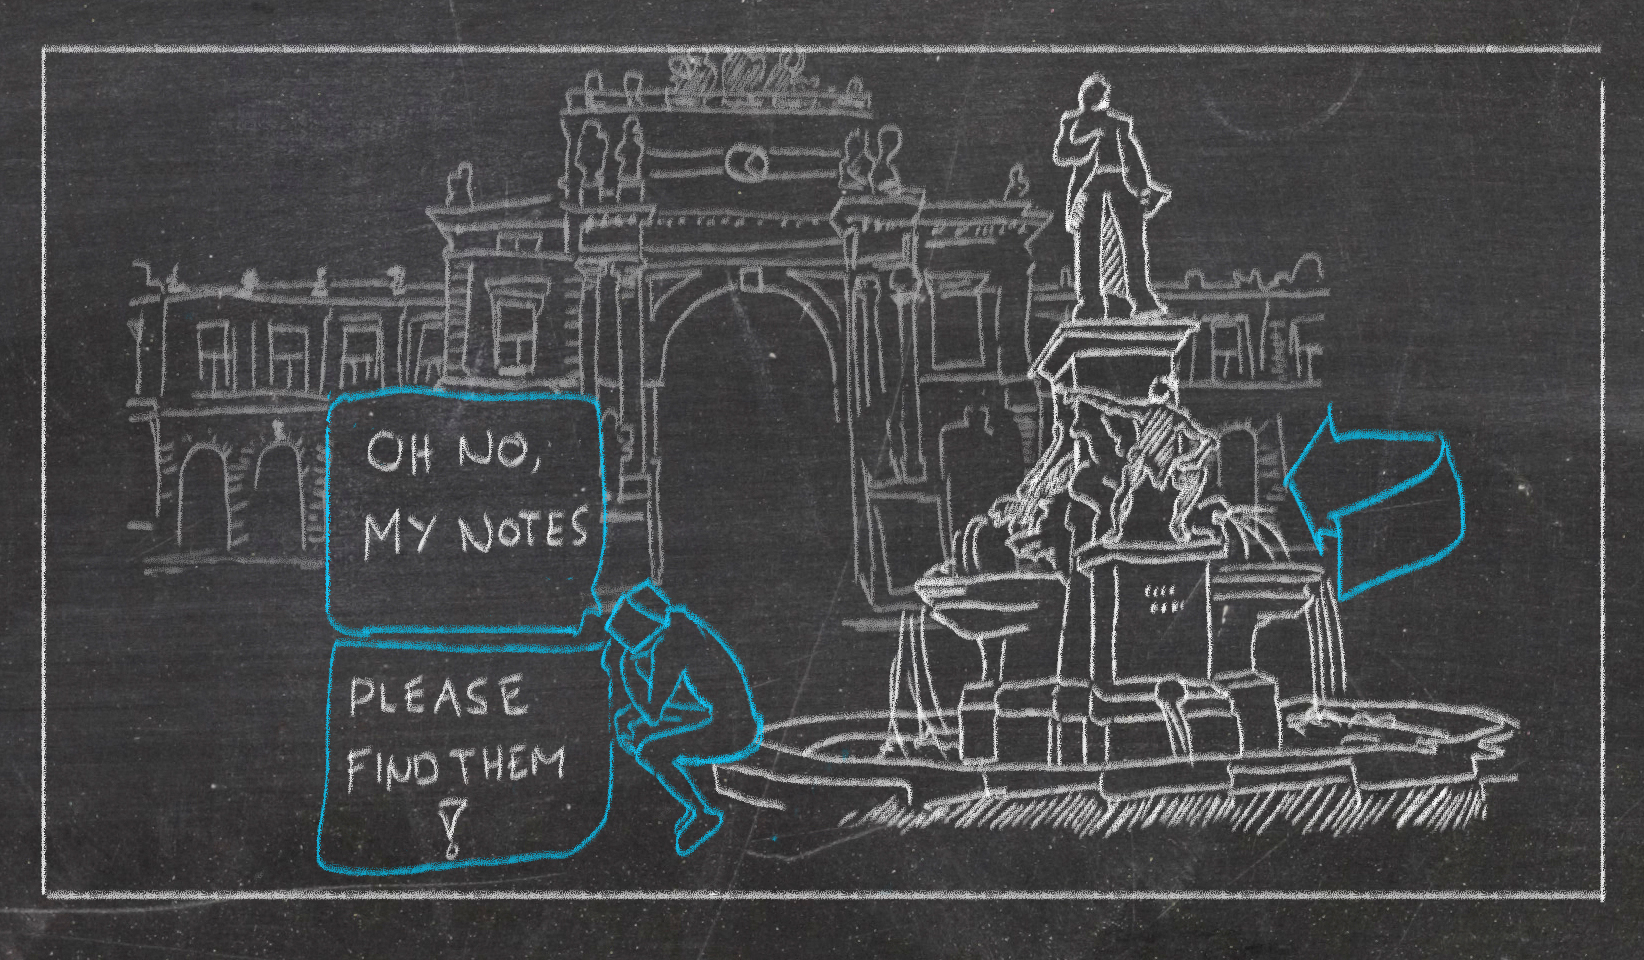 OH NO,
MY NOTES
PLEASE
FIND THEM
!